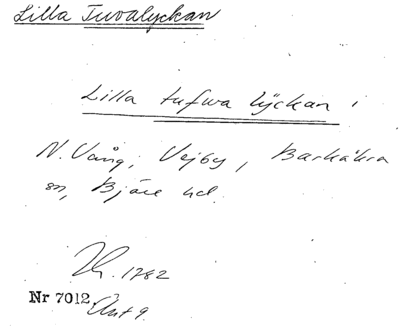 Lilla Tuvalyckan
Lilla tufwa lyckan i
N. Vång, Vejby, Barkåkra
sn, Bjäre hd.
1782
Nr 7012. Akt 9.